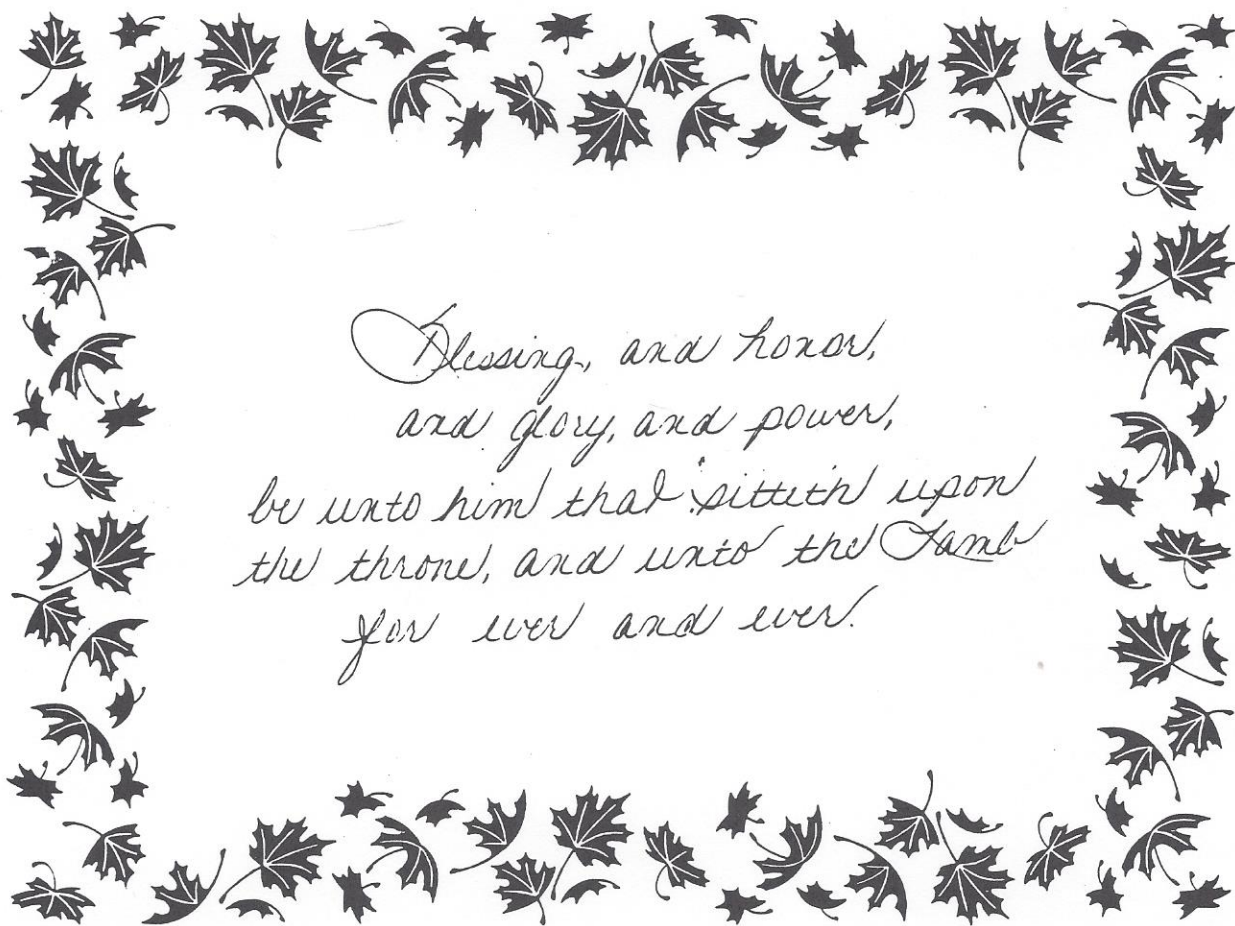 Blessing, and honor,
and glory, and power,
be unto him that sitteth upon
the throne, and unto the Lamb
for ever and ever.